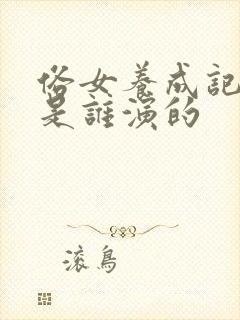 俗女養成記
是誰演的
滚鳥